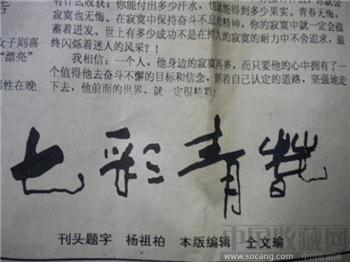 告
有什么收获；你能付出多少汗水，也就
寂寞也无悔。你就能得到多少果实。青春无悔，
在寂寞中保持奋斗不息的精神，你的寂寞中就一定会蕴
蓄着迸发。世上有多少成功不是在持久的耐力中不舍追求，最
终闪烁着迷人的风采？！
我相信：一个人，他身边的寂寞再多，而只要他的心中拥有了一
个值得他去奋斗不懈的目标和信念，循着自己认定的道路，坚强地走
下去，他前面的世界，就一定很精彩！
女子则喜
“漂亮”
男性在晚
七彩青春
刊头题字 杨祖柏 本版编辑 仝文瑜
中国收藏网
www.socang.com